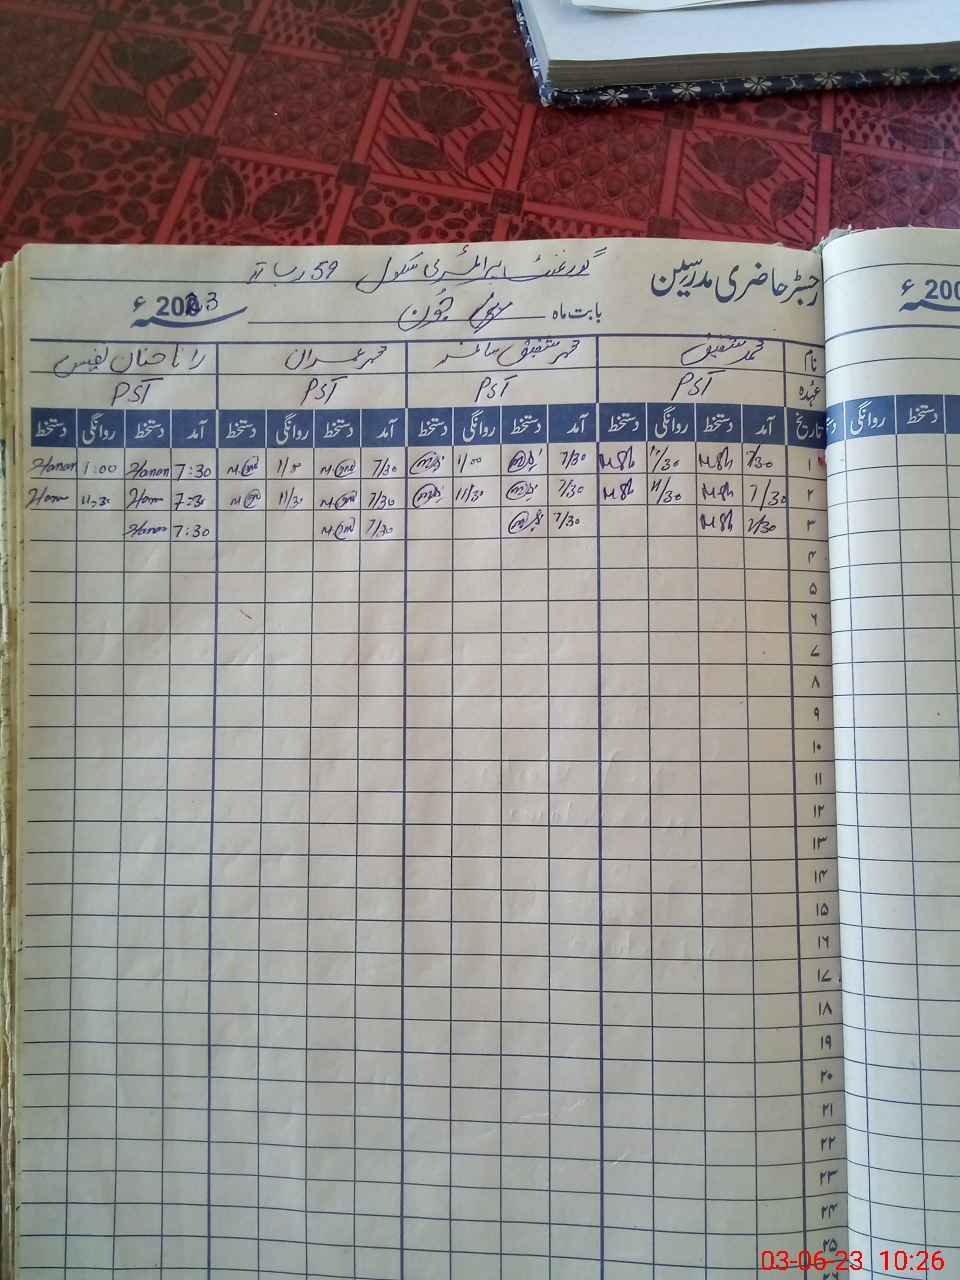 رجسٹر حاضری مدرسین گورنمنٹ پرائمری سکول 59 ر ب
بابت ماہ جون 2023ء
200
نام محمد شفیق محمد شفیق محمد عمران رانا حنان نفیس
عہدہ PST PST PST PST
تاریخ آمد دستخط روانگی دستخط آمد دستخط روانگی دستخط آمد دستخط روانگی دستخط آمد دستخط روانگی دستخط
روانگی دستخط
۱ 7/30 MSh 11/30 MSh 7/30 1/00 7/30 1/00 7:30 Hanan 1:00 Hanan
۲ 7/30 MSh 11/30 MSh 7/30 11/30 7/30 11/30 7:30 Hanan 11:30 Hanan
۳ 7/30 MSh 7/30 7/30 7:30 Hanan
۴
۵
۶
۷
۸
۹
۱۰
۱۱
۱۲
۱۳
۱۴
۱۵
۱۶
۱۷
۱۸
۱۹
۲۰
۲۱
۲۲
۲۳
۲۴
۲۵
۲۶
03-06-23 10:26